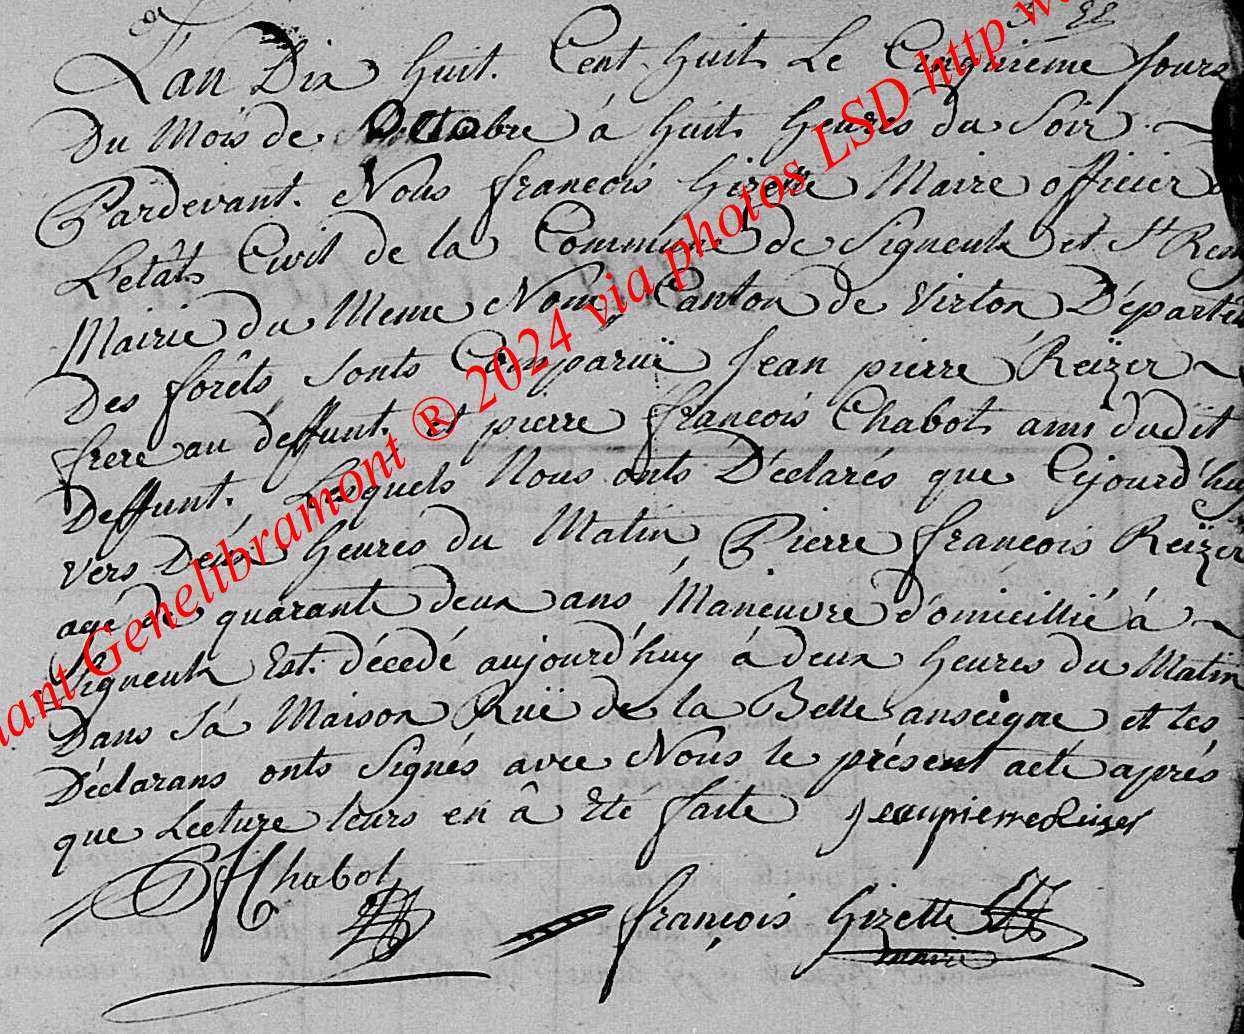 L'an Dix huit. Cent huit Le Cinquieme Jours
Du Mois de Octobre à huit heures du Soir
Pardevant. Nous françois Gizette Maire officier
Letât Civil de la Commune de Signeulx et St Remy
Mairie du Meme Nom, Canton de Virton Départe
Des forêts sonts Comparuë Jean pierre Reïzer
frere au deffunt. et pierre françois Chabot ami dudit
Deffunt. Lesquels Nous onts Déclarés que Cejourd'huy
vers Deux heures du Matin Pierre françois Reïzer
agé de quarante deux ans, Maneuvre d'omicillié à
Signeulx Est. décedé aujourd'huy à deux heures du Matin
Dans sá Maison Ruë de la Belle anseigne et les
Déclarans onts Signés avec Nous le présent acte aprés
que Lecture leurs en â Ete faite Jeanpierre Reizer
PF Chabot
françois Gizette
maire
nant Genelibramont ® 2024 via photos LSD http w